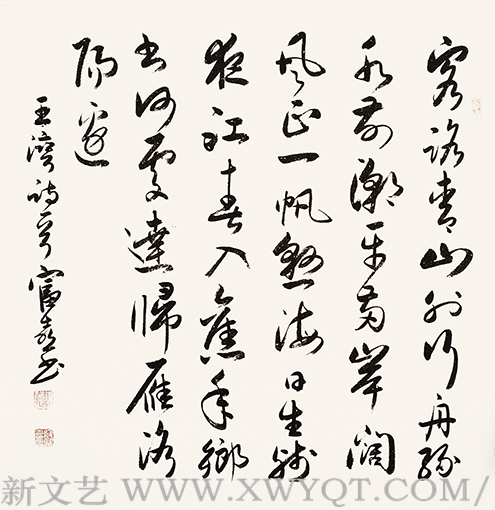 客路青山外行舟綠
水前潮平兩岸闊
風正一帆懸海日生殘
夜江春入舊年鄉
書何處達歸雁洛
陽邊
王灣詩 富書
新文艺 /WWW.XWYQT.COM/